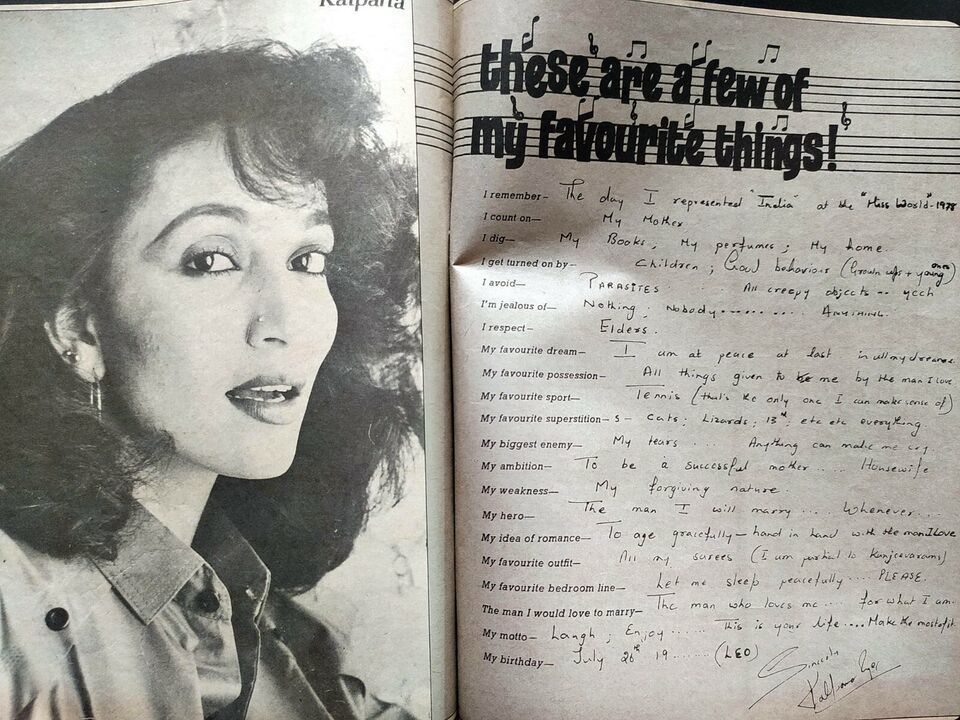 Kalpana
these are a few of
my favourite things!
I remember— The day I represented "India" at the "Miss World"-1978
I count on— My Mother
I dig— My Books; My perfumes; My home.
I get turned on by— Children; Good behaviour (Grown ups + young ones)
I avoid— PARASITES ..... All creepy objects -- ycch
I'm jealous of— Nothing; Nobody......... ANYTHING.
I respect— Elders.
My favourite dream— I am at peace at last in all my dreams
My favourite possession— All things given to me by the man I love
My favourite sport— Tennis (that's the only one I can make sense of)
My favourite superstition—s- Cats; Lizards; 13th; etc etc everything
My biggest enemy— My tears .... Anything can make me cry
My ambition— To be a successful mother.... Housewife
My weakness— My forgiving nature.
My hero— The man I will marry .... Whenever....
My idea of romance— To age gracefully — hand in hand with the man I love
My favourite outfit— All my sarees (I am partial to Kanjeevarams)
My favourite bedroom line— Let me sleep peacefully .... PLEASE
The man I would love to marry— The man who loves me ... for what I am.
My motto— Laugh; Enjoy ...... This is your life .... Make the most of it.
My birthday— July 26th 19........ (LEO)
Sincerely
Kalpana Iyer